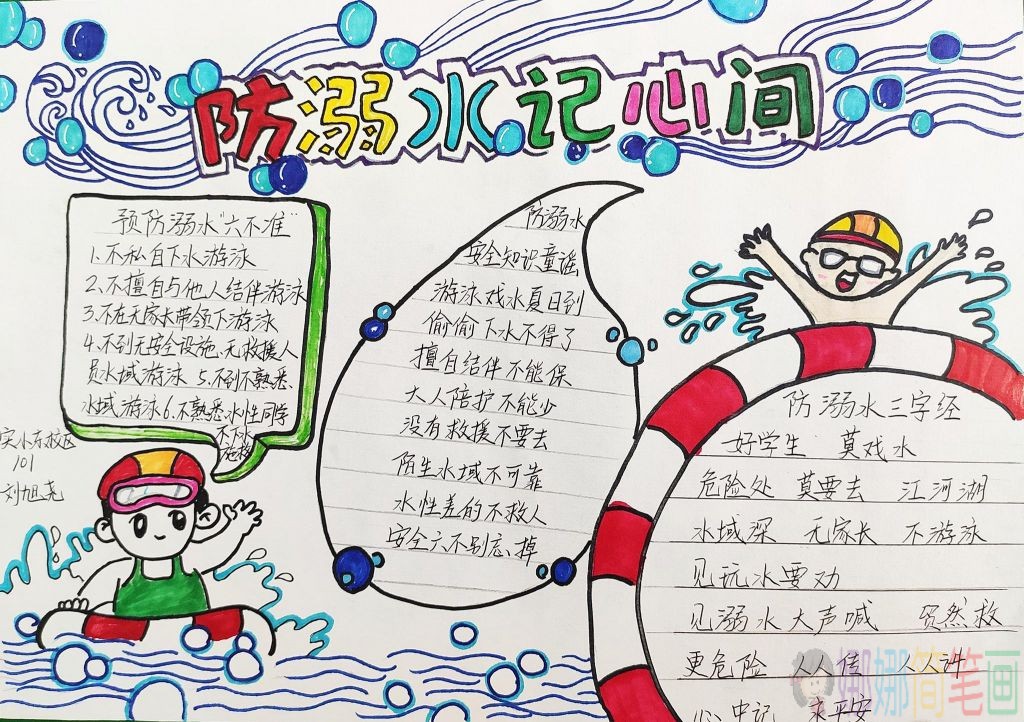 防溺水记心间
预防溺水"六不准"
1.不私自下水游泳
2.不擅自与他人结伴游泳
3.不在无家长带领下游泳
4.不到无安全设施、无救援人
员水域游泳 5.不到不熟悉、
水域游泳 6.不熟悉水性同学
不下水
施救
实小东校区
101
刘旭尧
防溺水
安全知识童谣
游泳戏水夏日到
偷偷下水不得了
擅自结伴不能保
大人陪护不能少
没有救援不要去
陌生水域不可靠
水性差的不救人
安全六不别忘掉
防溺水三字经
好学生 莫戏水
危险处 莫要去 江河湖
水域深 无家长 不游泳
见玩水要劝
见溺水大声喊 贸然救
更危险 人人信 人人讲
心中记 来平安
娜娜简笔画